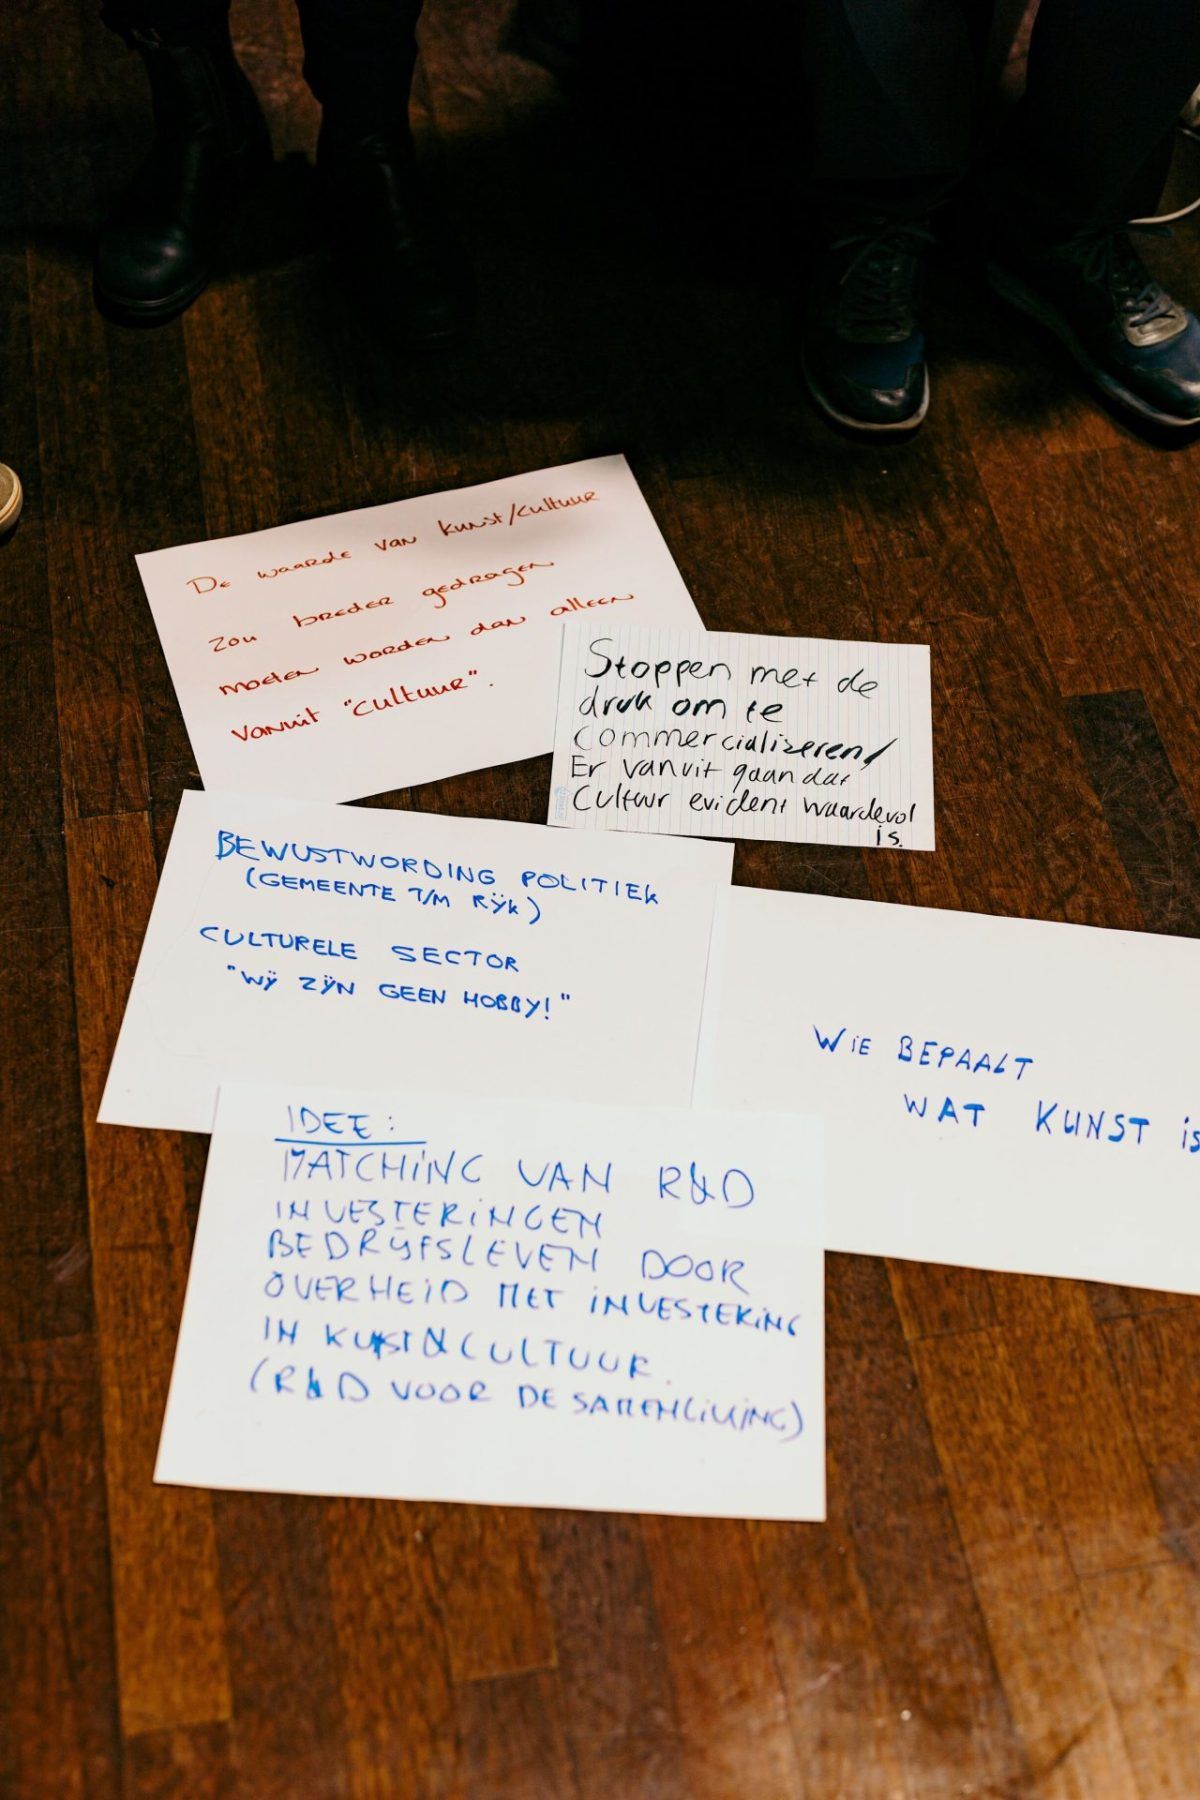 De waarde van kunst/cultuur
zou breder gedragen
moeten worden dan alleen
vanuit "cultuur".
Stoppen met de
druk om te
commercializeren/
Er vanuit gaan dat
Cultuur evident waardevol
is.
BEWUSTWORDING POLITIEK
(GEMEENTE T/M RIJK)
CULTURELE SECTOR
"WIJ ZIJN GEEN HOBBY!"
WIE BEPAALT
WAT KUNST is
IDEE:
MATCHING VAN R&D
INVESTERINGEN
BEDRIJFSLEVEN DOOR
OVERHEID MET INVESTERING
IN KUNST & CULTUUR.
(R&D VOOR DE SAMENLEVING)